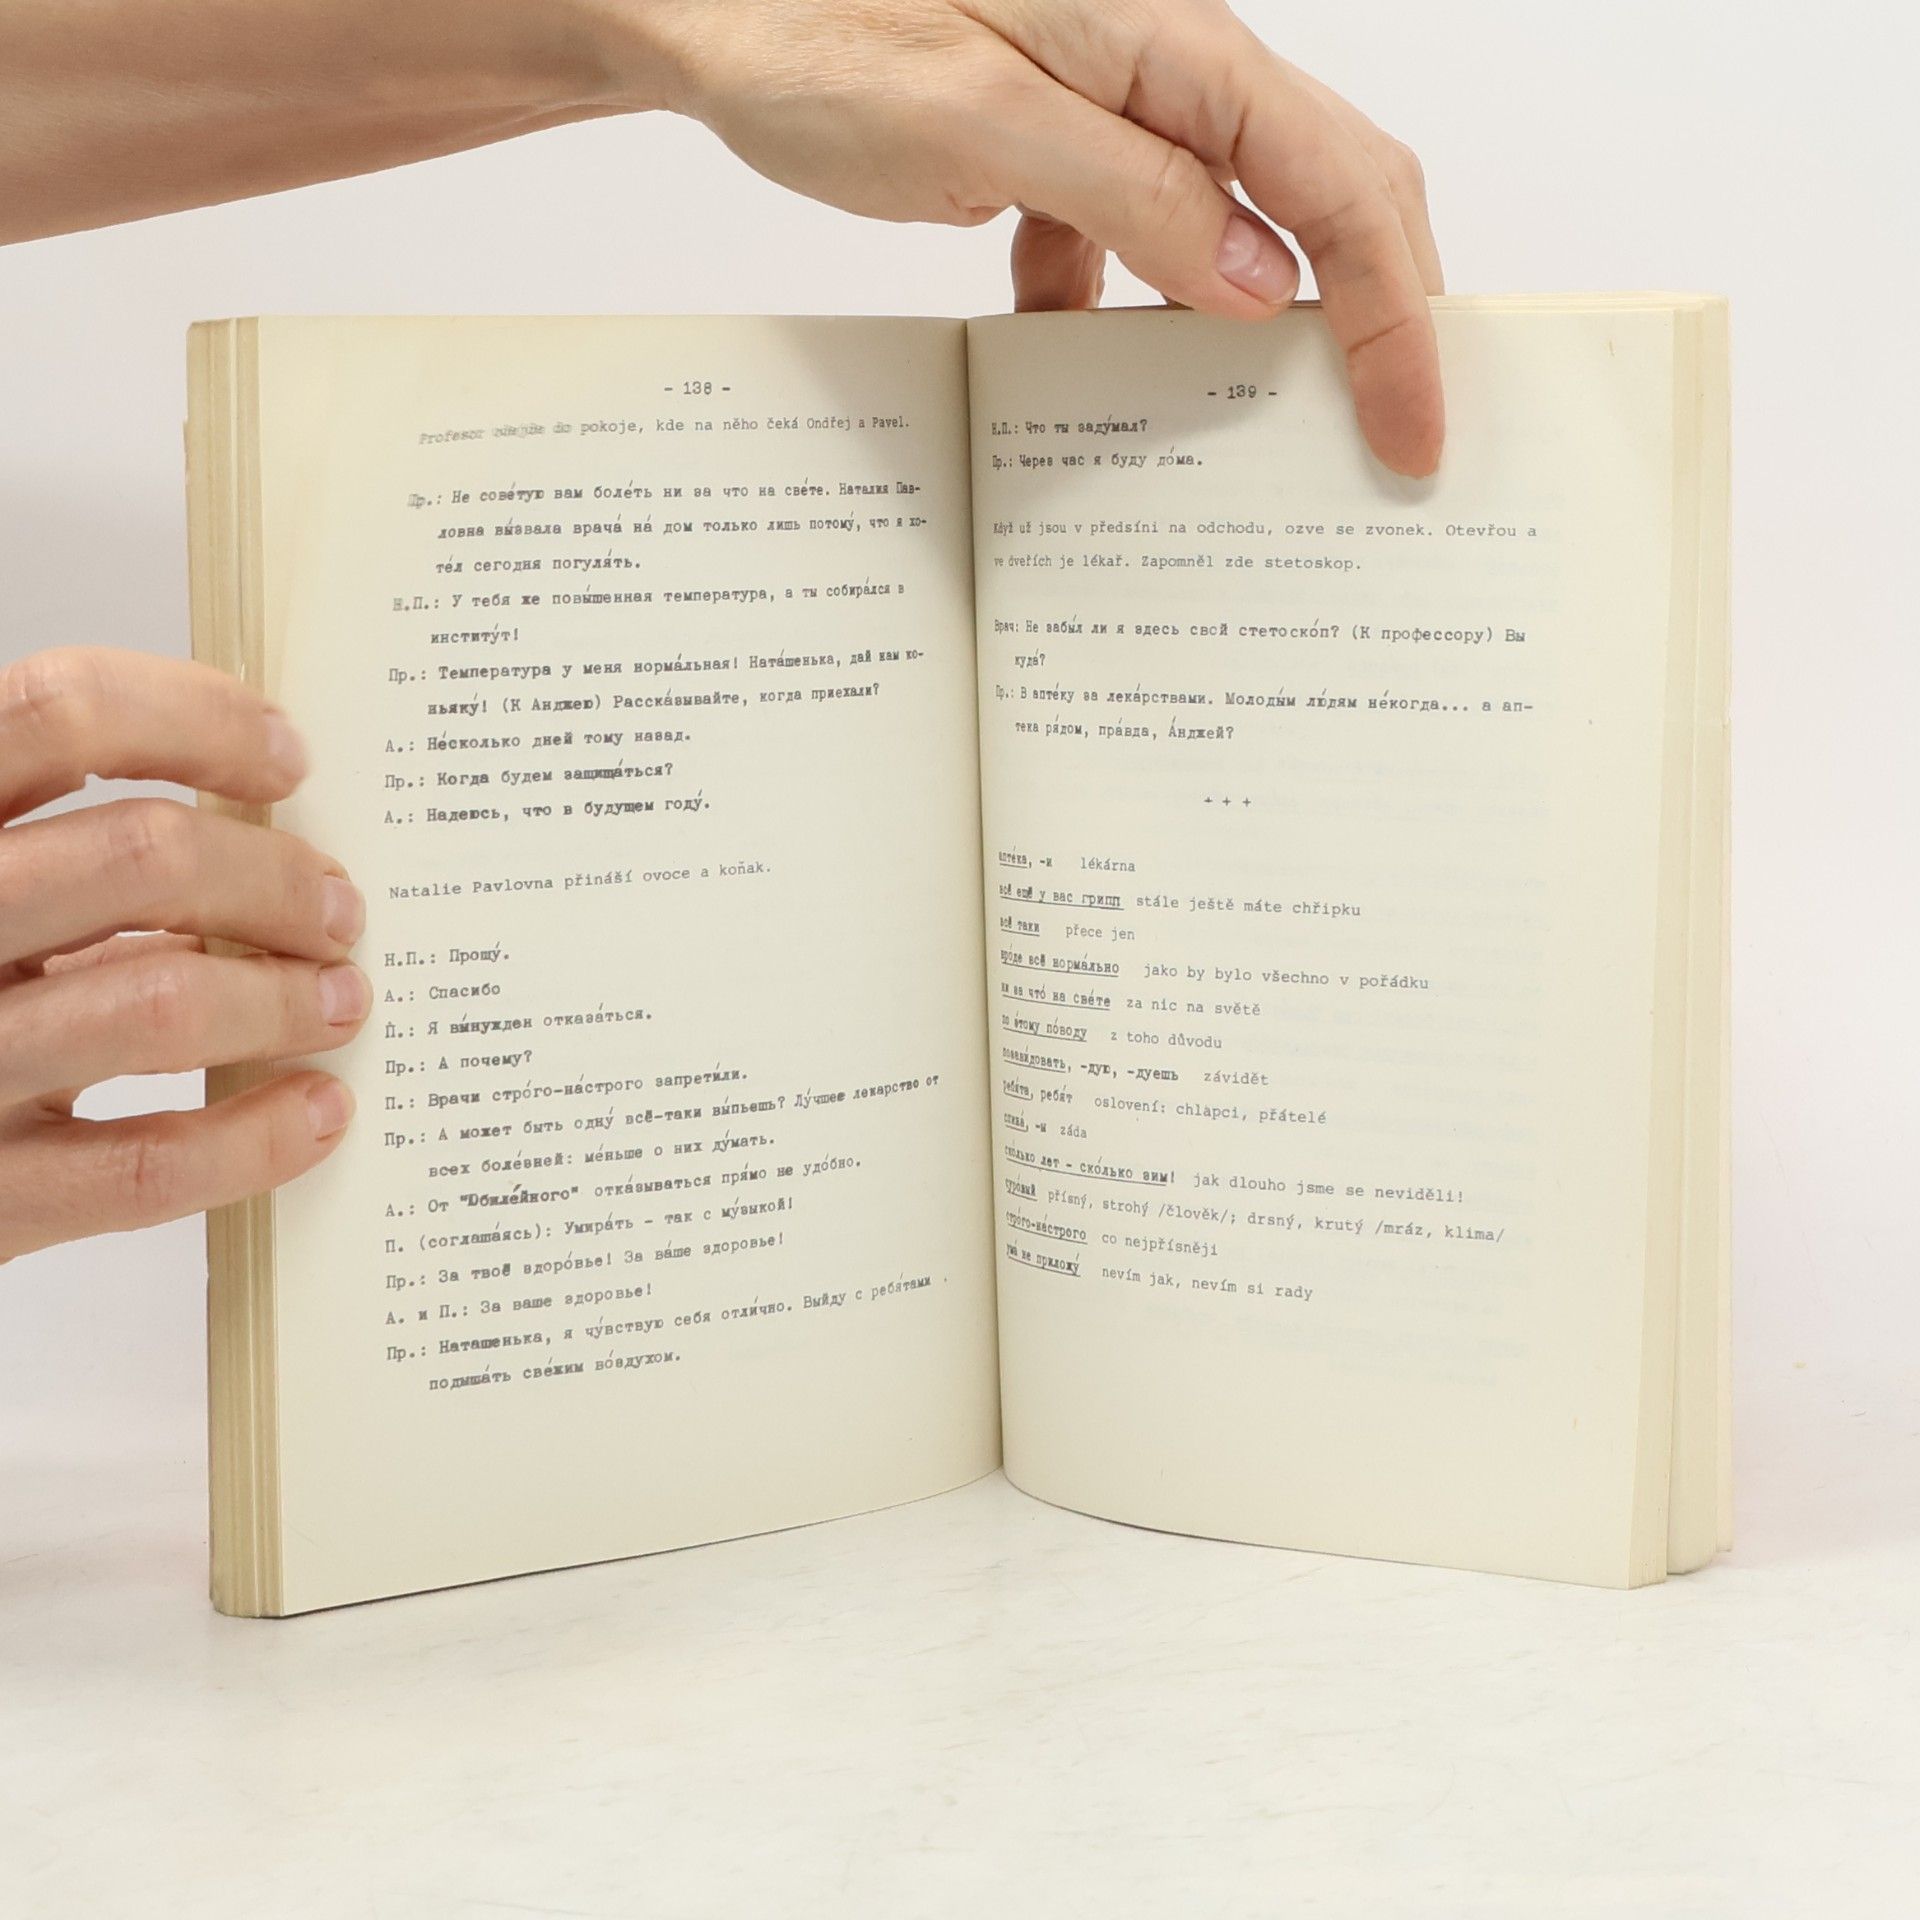 - 138 -
Profesor do pokoje, kde na něho čeká Ondřej a Pavel.
Пр.: Не сове́тую вам боле́ть ни за что на све́те. Наталия Пав-
ловна вы́звала врача́ на́ дом только лишь потому́, что я хо-
те́л сегодня погуля́ть.
Н.П.: У тебя же повы́шенная температура, а ты собира́лся в
институ́т!
Пр.: Температура у меня норма́льная! Ната́шенька, дай нам ко-
ньяку́! (К Анджею) Расска́зывайте, когда приехали?
А.: Не́сколько дней тому назад.
Пр.: Когда будем защища́ться?
А.: Надеюсь, что в будущем году́.
Natalie Pavlovna přináší ovoce a koňak.
Н.П.: Прошу́.
А.: Спасибо
П.: Я вы́нужден отказа́ться.
Пр.: А почему?
П.: Врачи стро́го-на́строго запрети́ли.
Пр.: А может быть одну́ всё-таки вы́пьешь? Лу́чшее лекарство от
всех боле́зней: ме́ньше о них ду́мать.
А.: От "Юбиле́йного" отка́зываться пря́мо не удо́бно.
П. (соглаша́ясь): Умира́ть - так с му́зыкой!
Пр.: За твоё здоро́вье! За ва́ше здоровье!
А. и П.: За ваше здоровье!
Пр.: Наташенька, я чу́вствую себя отли́чно. Выйду с ребя́тами .
подыша́ть све́жим во́здухом.
- 139 -
Н.П.: Что ты заду́мал?
Пр.: Через час я буду до́ма.
Když už jsou v předsíni na odchodu, ozve se zvonek. Otevřou a
ve dveřích je lékař. Zapomněl zde stetoskop.
Врач: Не забы́л ли я здесь свой стетоско́п? (К профессору) Вы
куда́?
Пр.: В апте́ку за лека́рствами. Молоды́м лю́дям не́когда... а ап-
тека ря́дом, пра́вда, А́нджей?
+ + +
апте́ка, -и lékárna
всё ещё у вас грипп stále ještě máte chřipku
всё таки přece jen
вро́де всё норма́льно jako by bylo všechno v pořádku
ни за что́ на све́те za nic na světě
по э́тому по́воду z toho důvodu
позави́довать, -дую, -дуешь závidět
ребя́та, ребя́т oslovení: chlapci, přátelé
спина́, -ы záda
ско́лько лет - ско́лько зим! jak dlouho jsme se neviděli!
суро́вый přísný, strohý /člověk/; drsný, krutý /mráz, klima/
стро́го-на́строго co nejpřísněji
ума́ не приложу́ nevím jak, nevím si rady